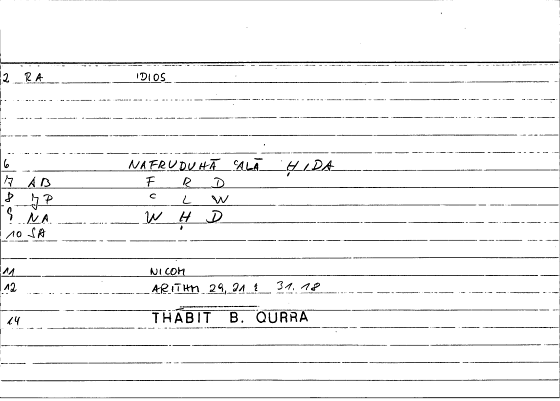 2 RA IDIOS
6 NAFRUDUHĀ ʿALĀ ḤIDA
7 AB F R D
8 JP ʿ L W
9 NA W Ḥ D
10 SA
11 NICOM
12 ARITHM 29,21 : 31.18
14 THABIT B. QURRA